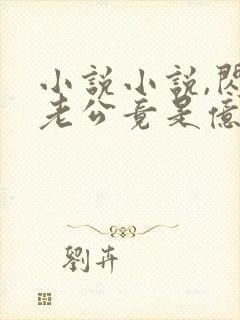 小說小說,閃
老公竟是億
劉卉